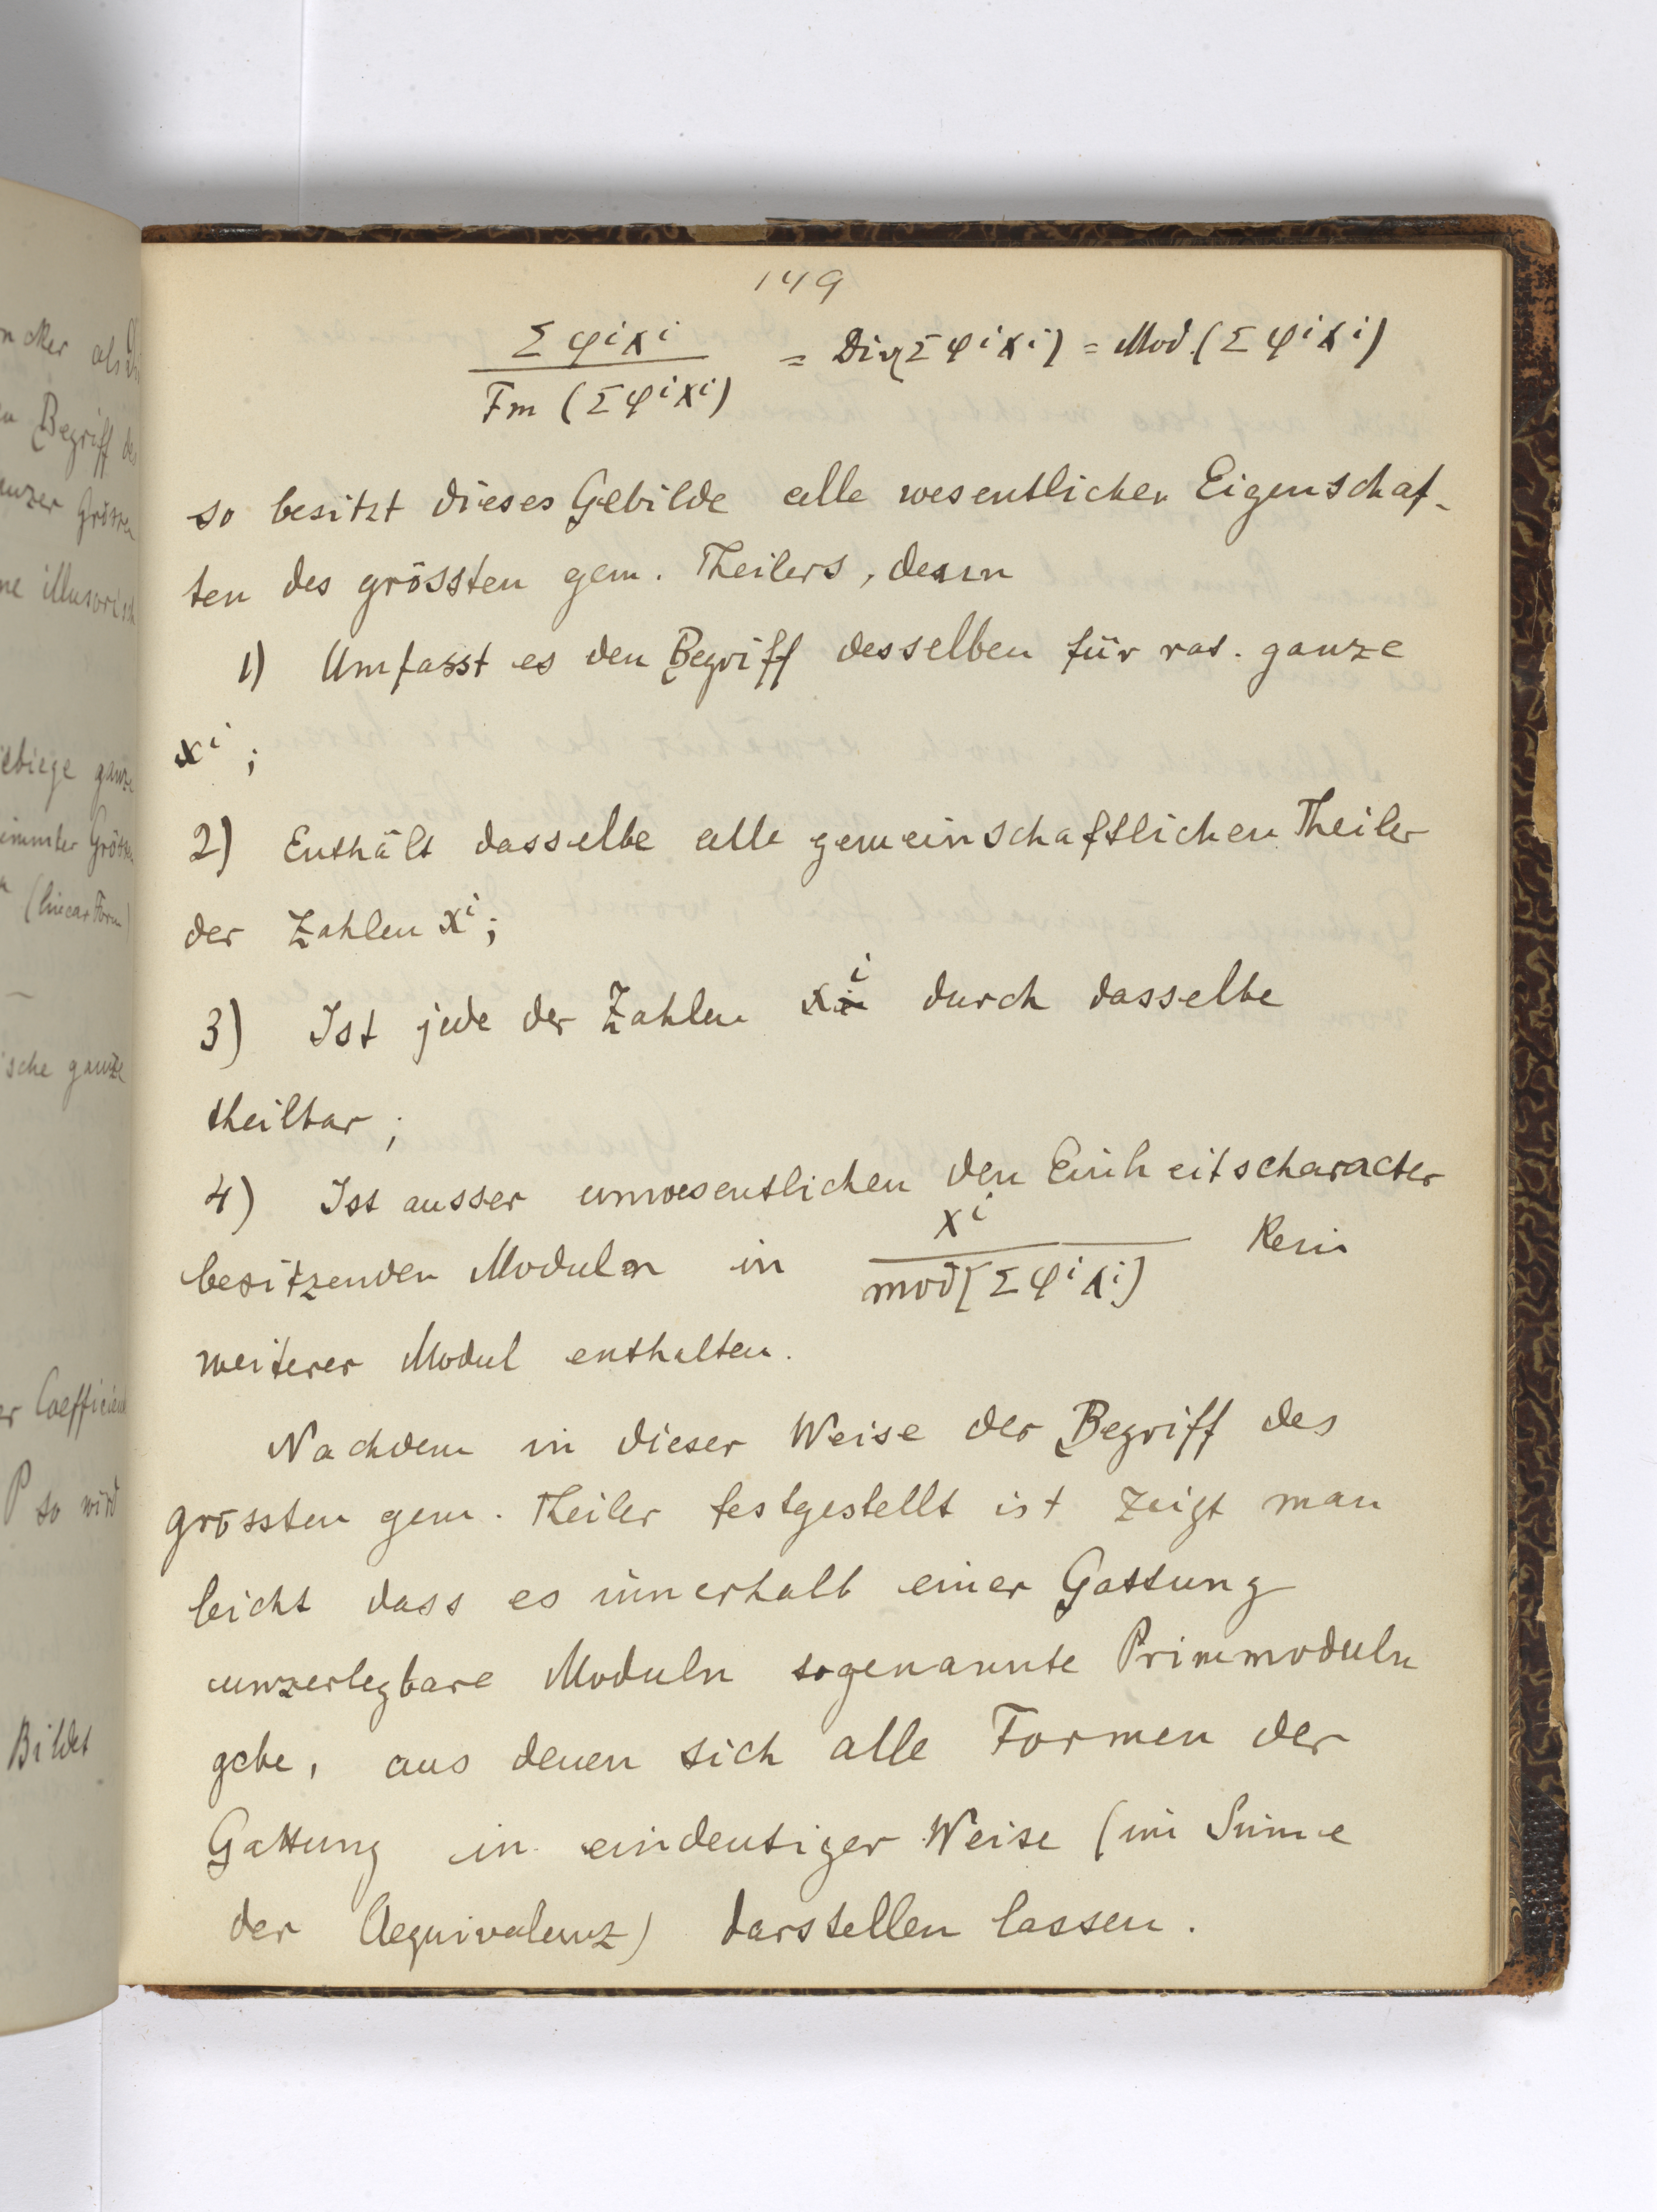 149
Σφⁱxⁱ / Fm (Σφⁱxⁱ) = Div(Σφⁱxⁱ) = Mod.(Σφⁱxⁱ)
so besitzt dieses Gebilde alle wesentlichen Eigenschaf-
ten des grössten gem. Theilers, denn
1) Umfasst es den Begriff desselben für rat. ganze
xⁱ;
2) Enthält dasselbe alle gemeinschaftlichen Theiler
der Zahlen xⁱ;
3) Ist jede der Zahlen xⁱ durch dasselbe
theilbar;
4) Ist ausser unwesentlichen den Einheitscharacter
besitzenden Moduln in xⁱ / mod(Σφⁱxⁱ) kein
weiterer Modul enthalten.
Nachdem in dieser Weise der Begriff des
grössten gem. Theiler festgestellt ist zeigt man
leicht dass es innerhalb einer Gattung
unzerlegbare Moduln sogenannte Primmoduln
gebe, aus denen sich alle Formen der
Gattung in eindeutiger Weise (im Sinne
der Aequivalenz) darstellen lassen.